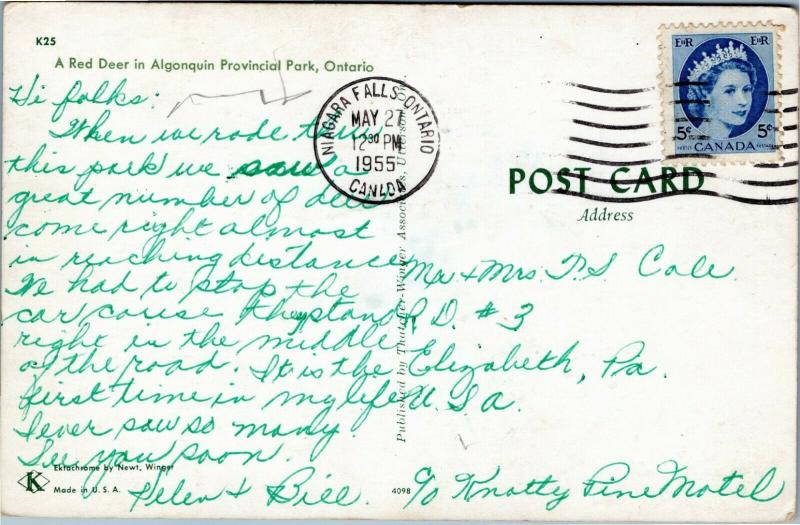 K25
A Red Deer in Algonquin Provincial Park, Ontario
Hi folks:
When we rode thru
this park we saw a
great number of deer
come right almost
in reaching distance
We had to stop the
car cause they stand
right in the middle
of the road. It is the
first time in my life
I ever saw so many.
See you soon.
Helen & Bill.
Ektachrome by Newt, Winger
K
Made in U. S. A.
4098
Published by Thatcher-Winger Associates,
NIAGARA FALLS-ONTARIO
MAY 27
12 30 PM
1955
CANADA
EIIR EIIR
5¢ 5¢
POSTES CANADA POSTAGE
POST CARD
Address
Mr & Mrs. T. S. Cole.
R. D. # 3
Elizabeth, Pa.
U. S. A.
c/o Knotty Pine Motel